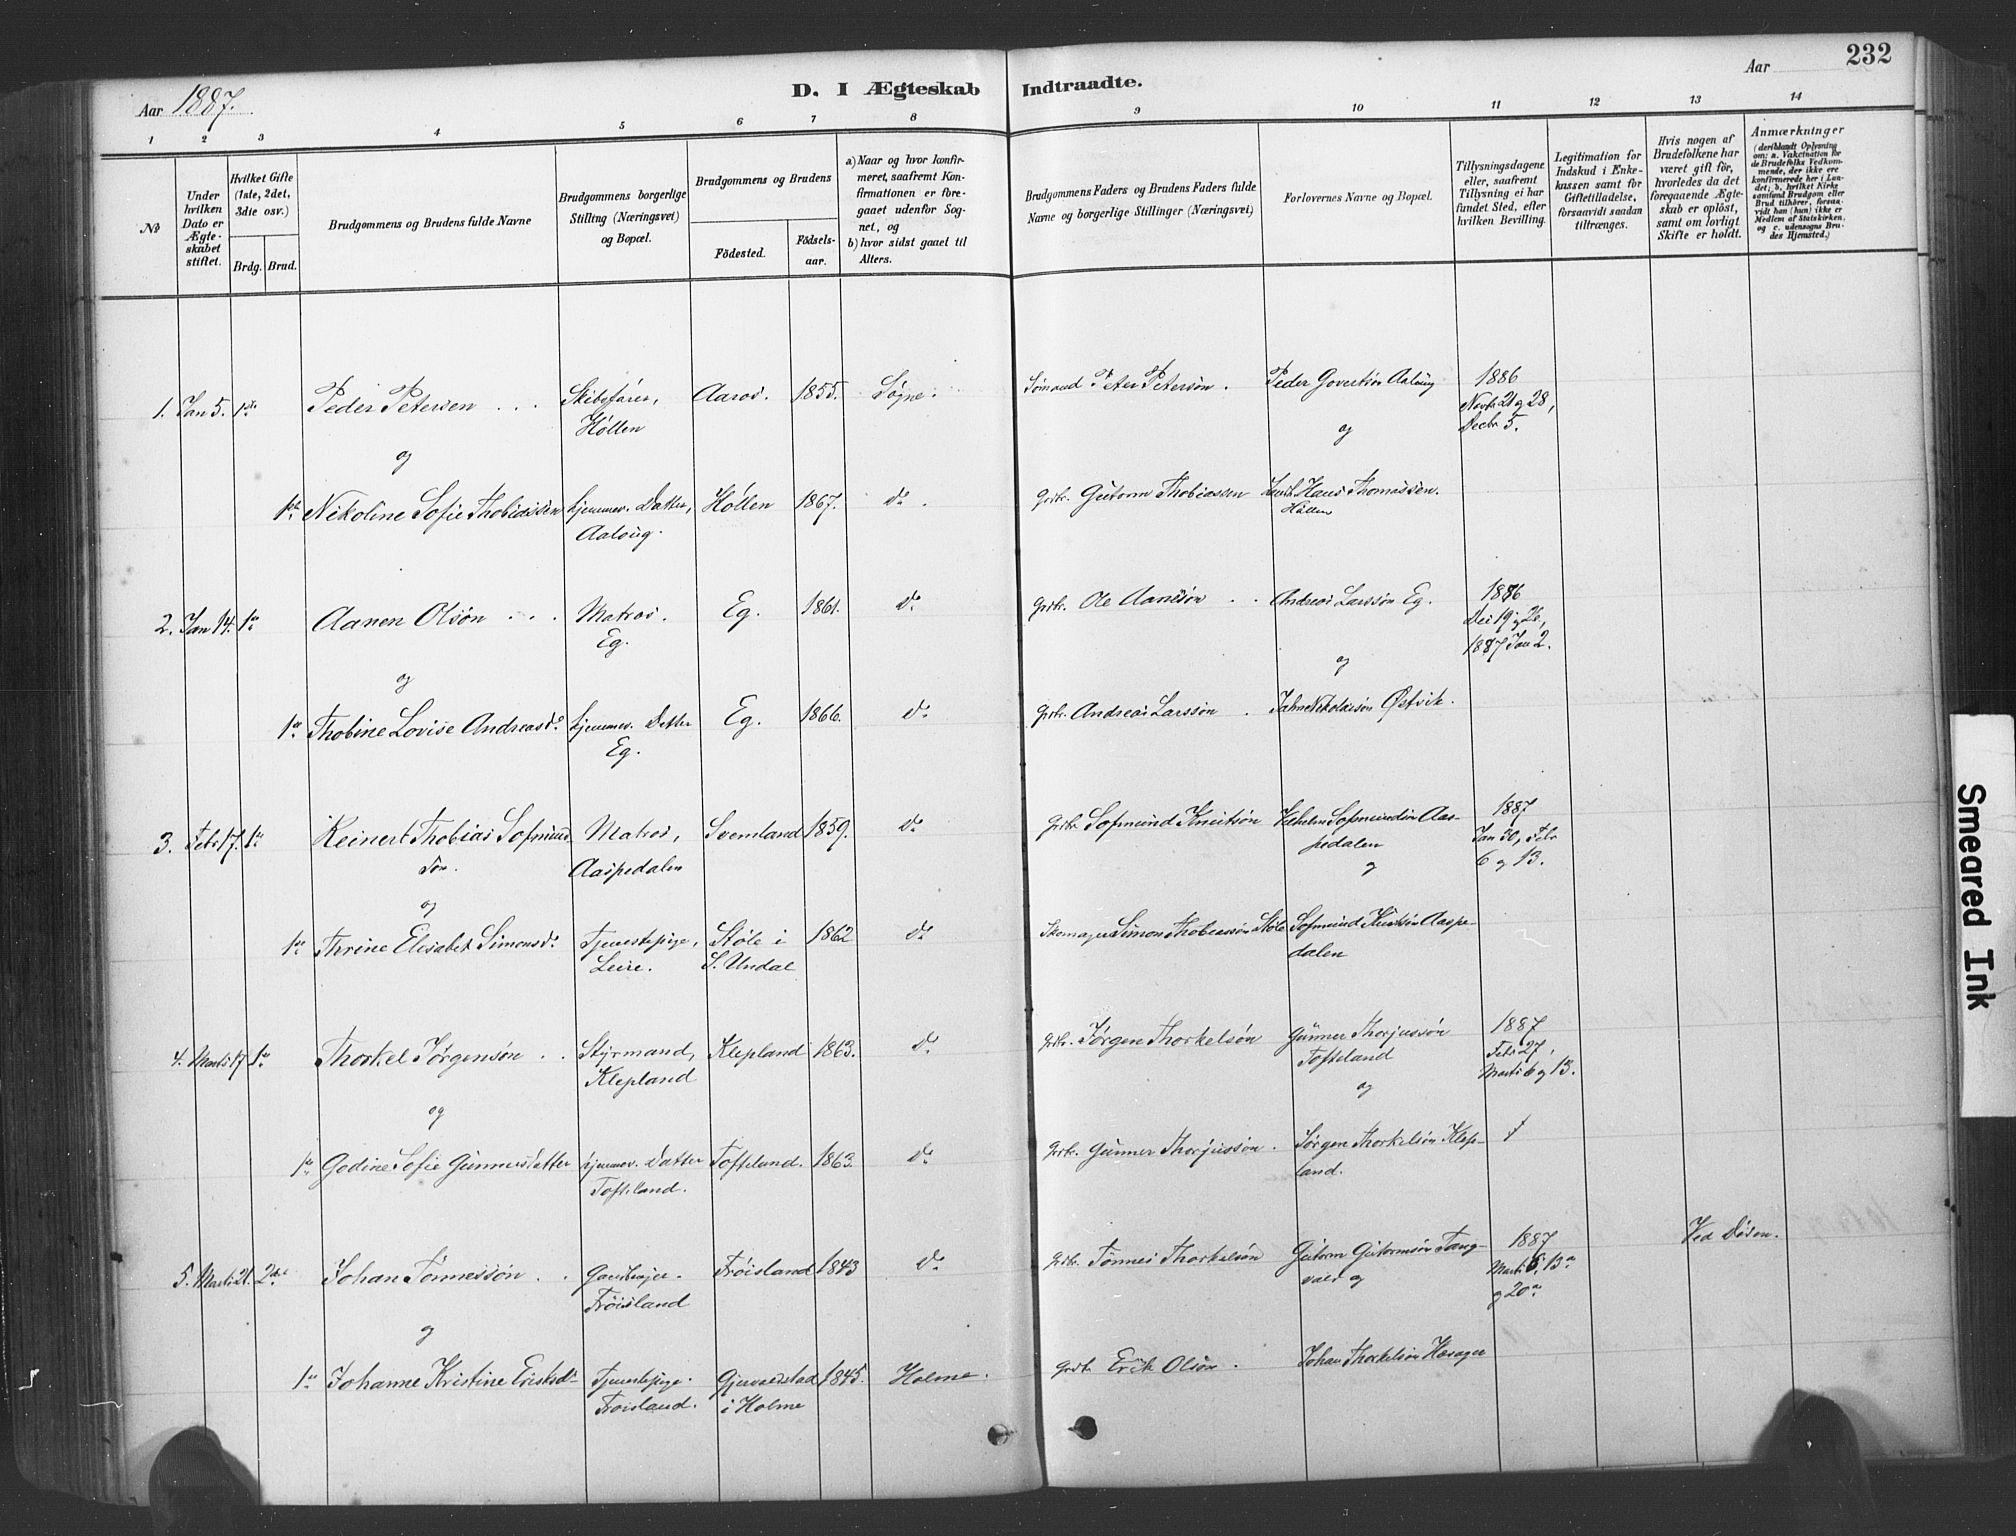 232
Aar 1887.
D. I Ægteskab Indtraadte.
Aar
1 2 3 4 5 6 7 8 9 10 11 12 13 14
No
Under hvilken Dato er Ægteskabet stiftet.
Hvilket Gifte (1ste, 2det, 3die osv.)
Brdg. Brud.
Brudgommens og Brudens fulde Navne
Brudgommens borgerlige Stilling (Næringsvei) og Bopæl.
Brudgommens og Brudens
Födested.
Födsels-aar.
a) Naar og hvor konfirmeret, saafremt Konfirmationen er foregaaet udenfor Sognet, og
b) hvor sidst gaaet til Alters.
Brudgommens Faders og Brudens Faders fulde Navne og borgerlige Stillinger (Næringsvei)
Forlovernes Navne og Bopæl.
Tillysningsdagene eller, saafremt Tillysning ei har fundet Sted, efter hvilken Bevilling.
Legitimation for Indskud i Enkekassen samt for Giftetilladelse, forsaavidt saadan tiltrænges.
Hvis nogen af Brudefolkene har været gift för, hvorledes da det foregaaende Ægteskab er oplöst, samt om lovligt Skifte er holdt.
Anmærkninger
(deriblandt Oplysning om: a. Vakcination for de Brudefolks Vedkommende, der ikke ere konfirmerede her i Landet; b. hvilket Kirkesamfund Brudgom eller Brud tilhörer, forsaavidt han (hun) ikke er Medlem af Statskirken, og c. udensogns Brudes Hjemsted.)
1. Jan 5. 1ste Peder Petersen . . . Skibsfører, Høllen Aaros. 1855. Søgne. Sömand Peter Petersön. Peder Govertsön Aaloug 1886 Novbr 21 og 28, Decbr 5.
og og
1ste Nikoline Sofie Thobiassen hjemmev. Datter, Aaloug. Høllen 1867. do. Grdbr. Gutorm Thobiassen Hans Thomassen. Höllen
2. Jan 14. 1ste Aanen Olsön . . . Matros. Eg. Eg. 1861. do Grdbr. Ole Aanesön . . Andreas Larssön Eg. 1886 Dec 19 og 26, 1887 Jan 2.
og og
1ste Thobine Lovise Andreasdr hjemmev. Datter Eg. Eg. 1866. do Grdbr. Andreas Larssön . Nikolaisön Østvik.
3. Febr 17. 1ste Reinert Thobias Sofmundsön. Matros, Aaspedalen Svemland 1859. do Grdbr Sofmund Knutsön Vilhelm Sofmundsön Aaspedalen 1887 Jan 30, Febr 6 og 13.
og og
1ste Thrine Elisabet Simonsdr Tjenestepige, Leire. Støle i S. Undal 1862 do Skomager Simon Thobiassön Støle Sofmund Knutsön Aaspedalen
4. Marts 17 1ste Thorkel Jørgensön . . Styrmand, Klepland Klepland 1863. do Grdbr. Jørgen Thorkelsön Gunner Thorjussön Tofteland 1887 Febr 27, Marts 6 og 13.
og og
1ste Godine Sofie Gunnersdatter hjemmev. Datter Tofteland. Tofteland. 1863. do Grdbr. Gunner Thorjussön. Jørgen Thorkelsön Klepland.
5. Marts 21. 2det Johan Tönnessön . . Gaardbruger. Fröisland Fröisland 1843 do Grdbr. Tönnes Thorkelsön Gutorm Gutormsön Tangvald og 1887 Marts 6, 13 og 20 Ved Döden.
og
1ste Johanne Kristine Eriksdr Tjenestepige. Fröisland. i Holme 1845. Holme. Grdbr Erik Olsön. Johan Thorkelsön
Smeared Ink